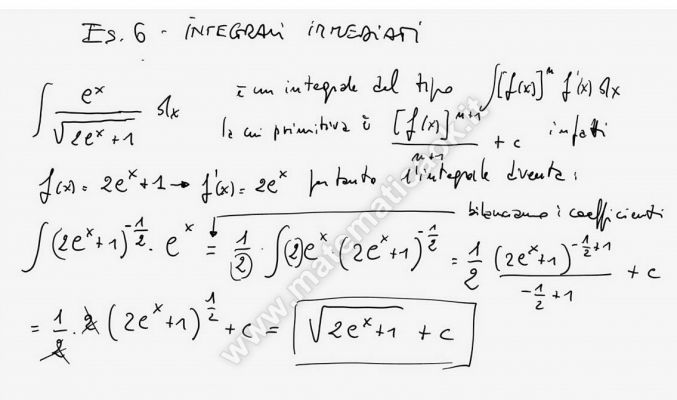 Es. 6 - INTEGRALI IMMEDIATI
∫ eˣ/√(2eˣ+1) dx è un integrale del tipo ∫[f(x)]ⁿ f'(x) dx
la cui primitiva è [f(x)]ⁿ⁺¹/(n+1) + c infatti
f(x) = 2eˣ+1 → f'(x) = 2eˣ pertanto l'integrale diventa:
bilanciamo i coefficienti
∫(2eˣ+1)^(-1/2) · eˣ = 1/2 · ∫(2)eˣ · (2eˣ+1)^(-1/2) = 1/2 (2eˣ+1)^(-1/2+1)/(-1/2+1) + c
= 1/2 · 2 (2eˣ+1)^(1/2) + c = √(2eˣ+1) + c
www.matematicaok.it